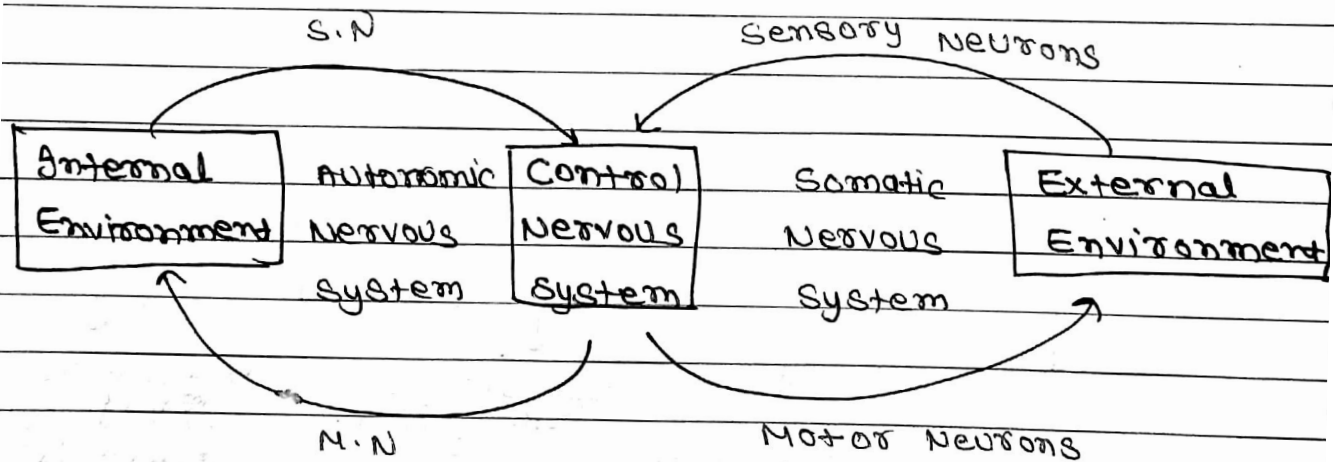 S.N
Sensory Neurons
Internal Environment
Autonomic Nervous System
Control Nervous System
Somatic Nervous System
External Environment
M.N
Motor Neurons